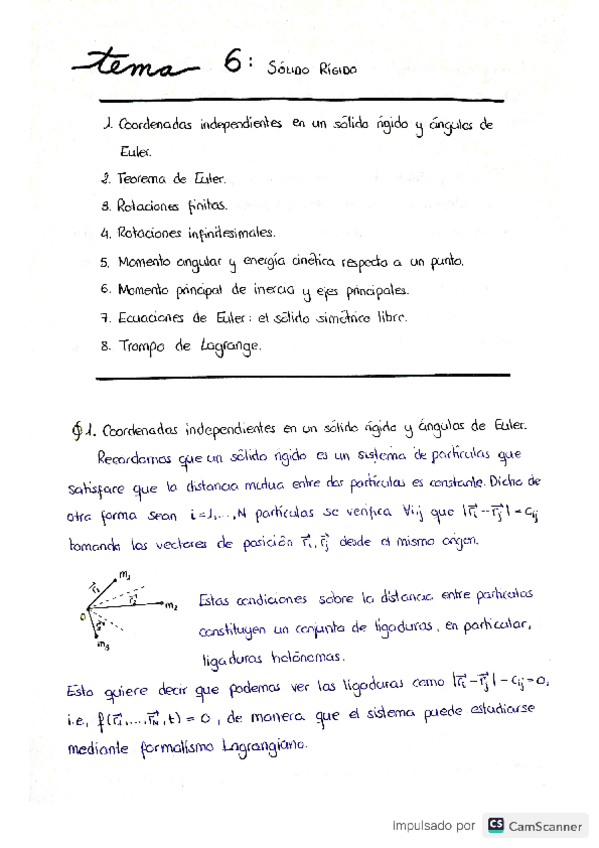 tema 6: SÓLIDO RÍGIDO
1. Coordenadas independientes en un sólido rígido y ángulos de
Euler.
2. Teorema de Euler.
3. Rotaciones finitas.
4. Rotaciones infinitesimales.
5. Momento angular y energía cinética respecto a un punto.
6. Momento principal de inercia y ejes principales.
7. Ecuaciones de Euler: el sólido simétrico libre.
8. Trompo de Lagrange.
§1. Coordenadas independientes en un sólido rígido y ángulos de Euler.
Recordamos que un sólido rígido es un sistema de partículas que
satisface que la distancia mutua entre dos partículas es constante. Dicho de
otra forma sean i=1,...,N partículas se verifica ∀i,j que |r⃗i - r⃗j| = cij
tomando los vectores de posición r⃗i, r⃗j desde el mismo origen.
m1
r⃗1
r⃗2
m2
O
m3
Estas condiciones sobre la distancia entre partículas
constituyen un conjunto de ligaduras, en particular,
ligaduras holónomas.
Esto quiere decir que podemos ver las ligaduras como |r⃗i - r⃗j| - cij = 0,
i.e, f(r⃗1,...,r⃗N,t) = 0, de manera que el sistema puede estudiarse
mediante formalismo Lagrangiano.
Impulsado por CS CamScanner